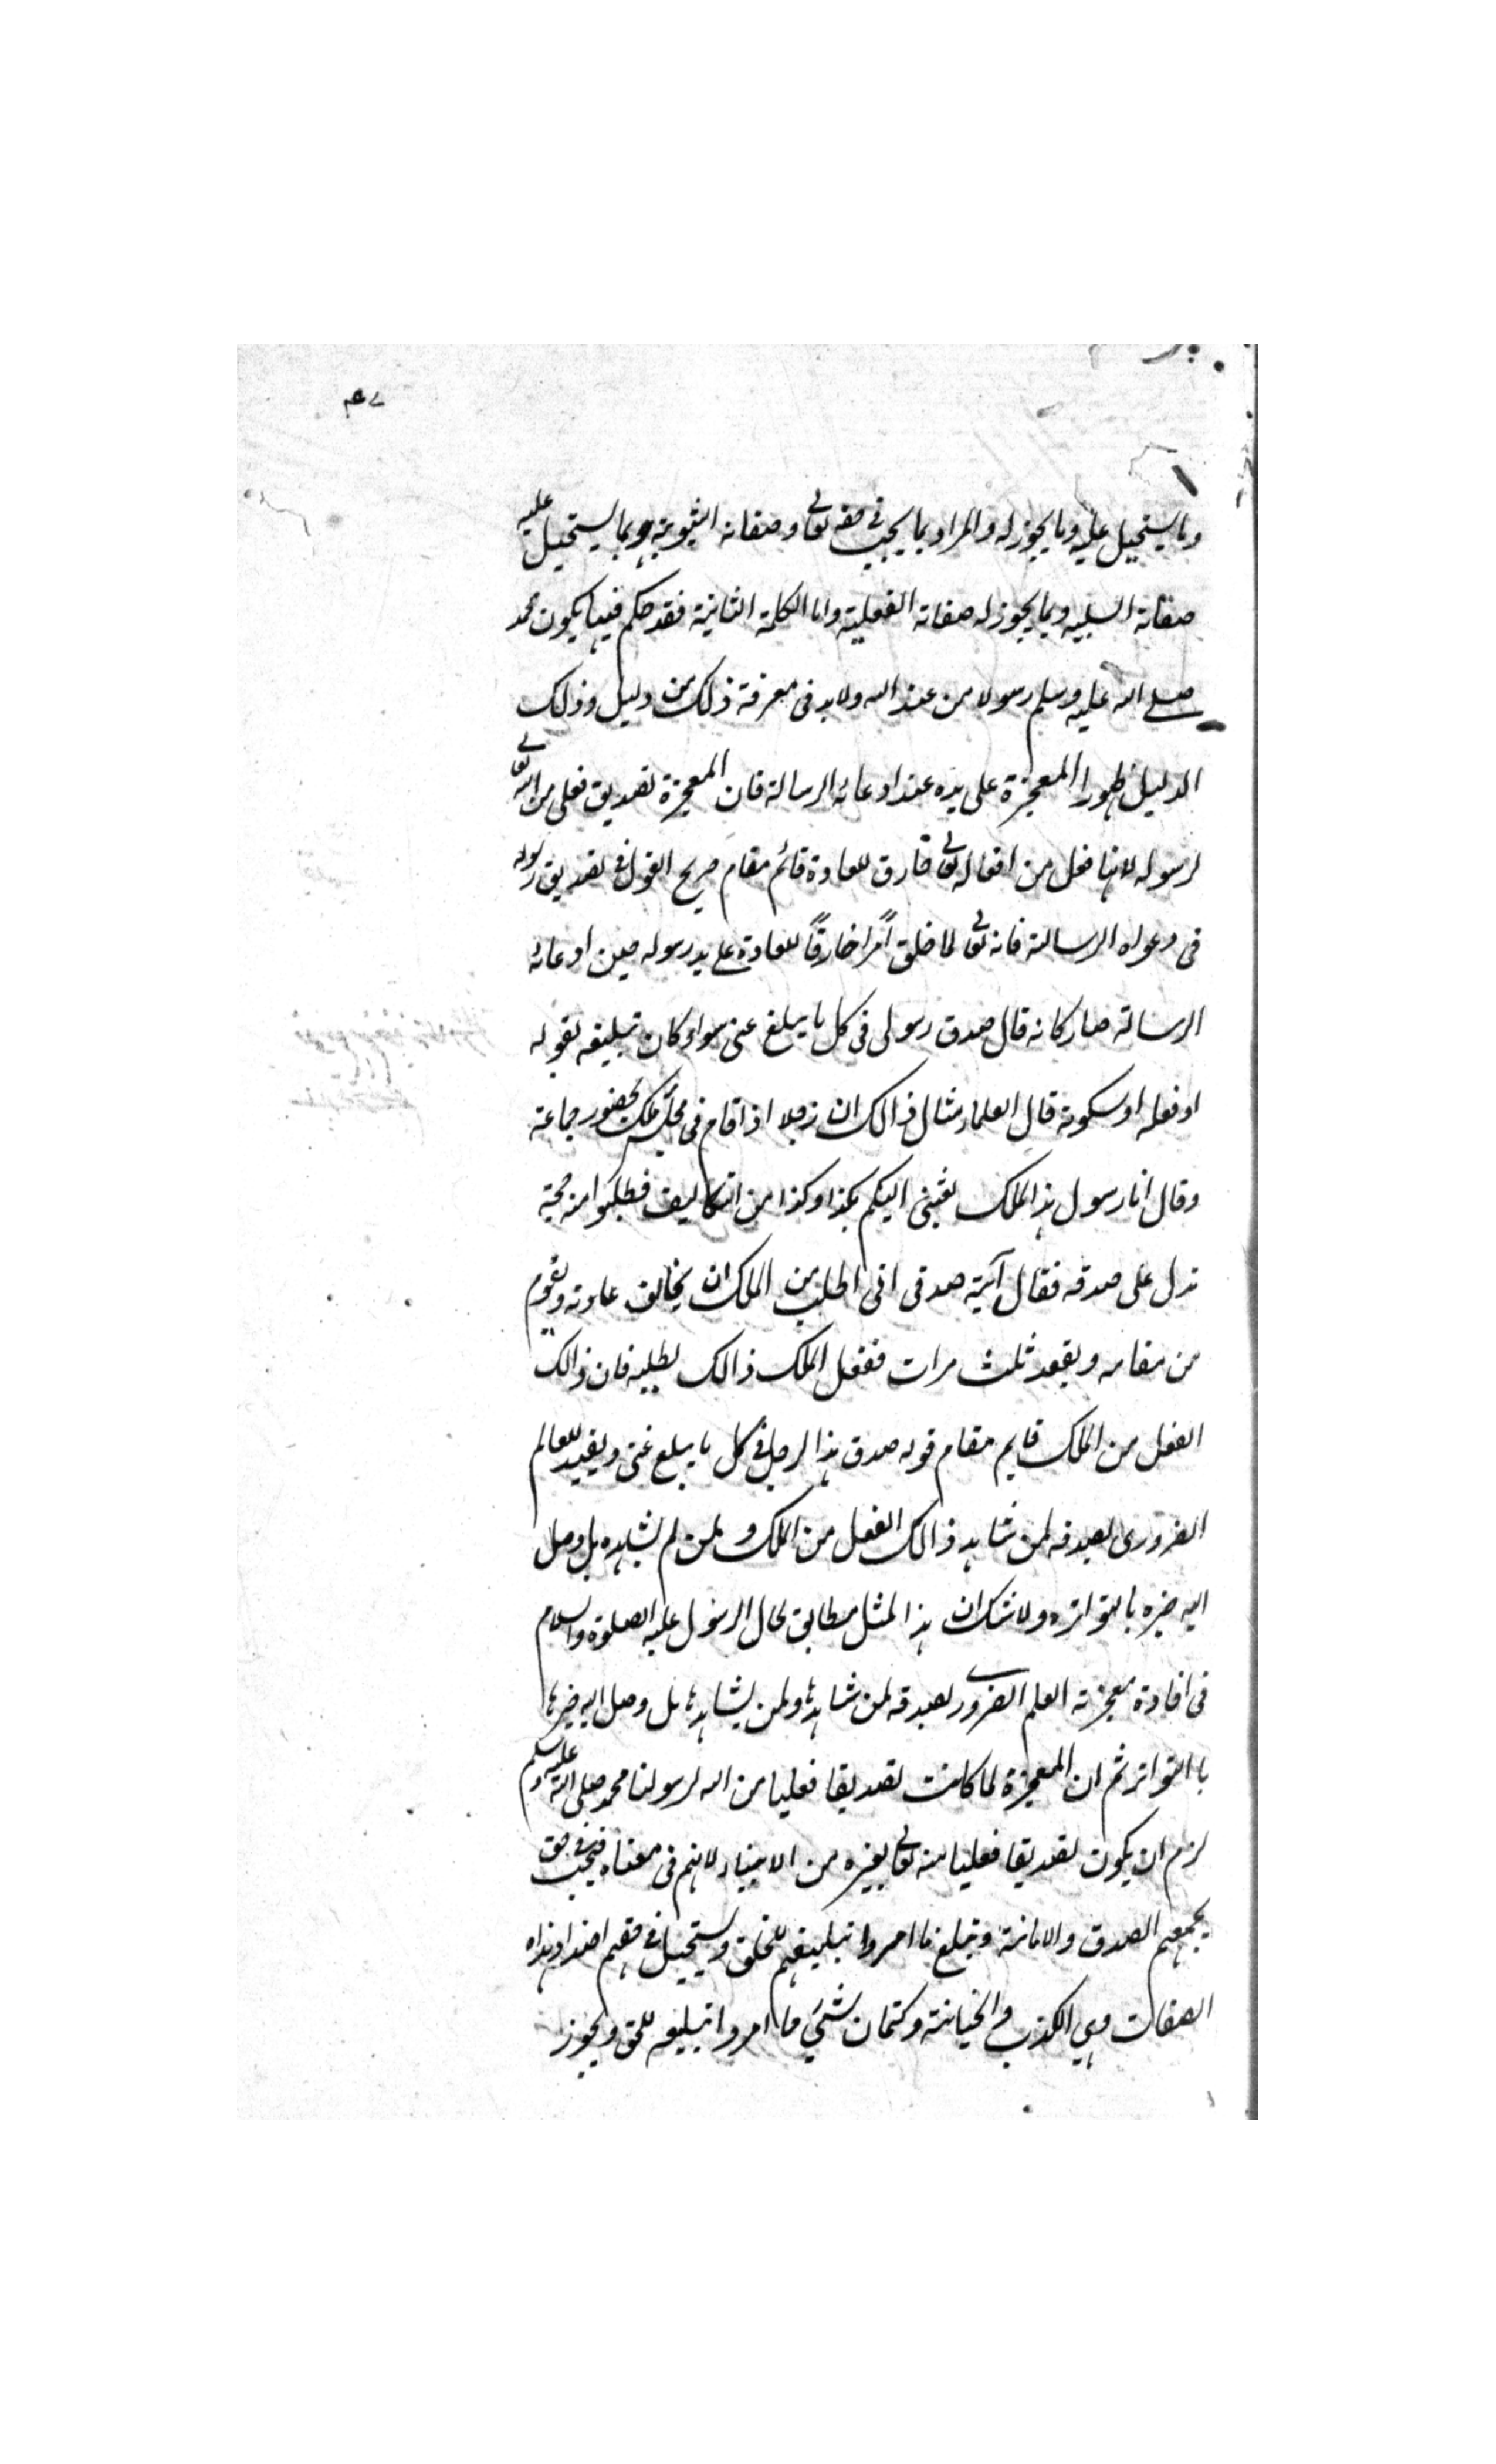 وما يستحيل عليه وما يجوز له والمراد بما يجب فى حقه تعالى وصفاته الثبوتية وبما يستحيل عليه
صفاته السلبيه وبما يجوز له صفاته الفعلية واما الكلمة الثانية فقد حكم فيها بكون محمد
صلى الله عليه وسلم رسولا من عند الله ولابد فى معرفة ذلك من دليل وذلك
الدليل ظهور المعجزة على يده عند ادعائه الرسالة فان المعجزة تصديق فعلى من الله تعالى
لرسوله لانها فعل من افعاله تعالى خارق للعادة قائم مقام صريح القول فى تصديق رسوله
فى دعواه الرسالة فانه تعالى لما خلق أمرًا خارقًا للعادة على يد رسوله حين ادعائه
الرسالة صار كانه قال صدق رسولى فى كل ما يبلغ عنى سواء كان تبليغه بقوله
او فعله او سكوته قال العلماء مثال ذالك ان رجلا اذا قام فى مجلس ملك بحضور جماعة
وقال انا رسول هذا الملك بعثنى اليكم بكذا وكذا من التكاليف فطلبوا منه حجة
تدل على صدقه فقال آية صدقى انى اطلب من الملك ان يخالف عادته ويقوم
من مقامه ويقعد ثلث مرات ففعل الملك ذالك بطلبه فان ذالك
الفعل من الملك قايم مقام قوله صدق هذا الرجل فى كل ما يبلغ عنى ويفيد للعالم
الضرورى بصدقه لمن شاهد ذالك الفعل من الملك ولمن لم يشاهده بل وصل
اليه خبره بالتواتره ولا شك ان هذا المثل مطابق لحال الرسول عليه الصلوة والسلام
فى افادة معجزته العلم الضرورى بصدقه لمن شاهدها ولمن يشاهدها بل وصل اليه خبرها
باالتواتر ثم ان المعجزة لما كانت تصديقا فعليا من الله لرسولنا محمد صلى الله عليه وسلم
لزم ان يكون تصديقا فعليا منه تعالى بغيره من الانبياء لانهم فى معناه فيجب فى حق
جميعهم الصدق والامانة وتبلغ ما امروا تبليغهم للخلق ويستحيل فى حقهم اضداد هذه
الصفات وهي الكذب والخيانة وكتمان شئ ما امروا تبليغه للحق ويجوز